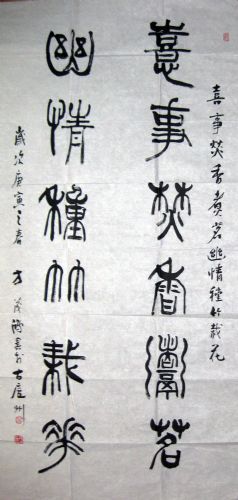 喜事焚香煮茗幽情種竹栽花
憙事焚香煮茗
幽情種竹栽花
歲次庚寅之春 方茂書於古廬州